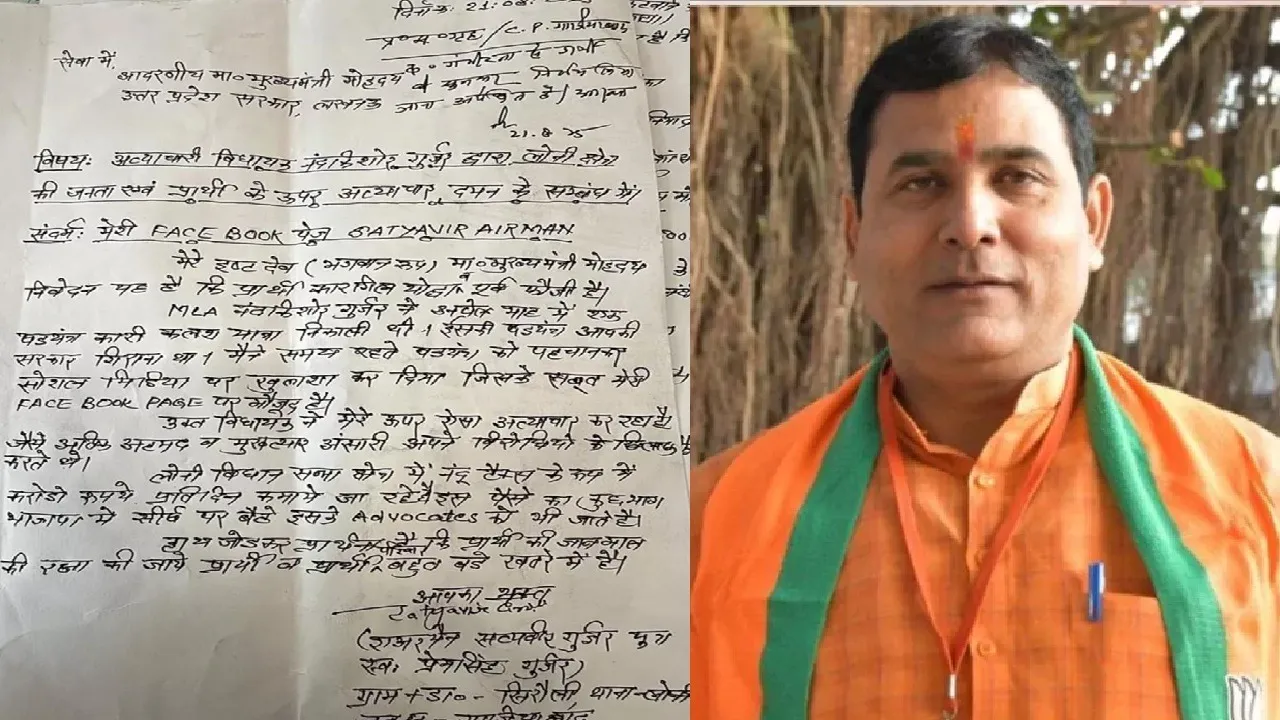 दिनांक: 21.08.
प्र०स०गृह/C.P. गाजियाबाद
सेवा में,
आदरणीय मा० मुख्यमंत्री मोहदय
उत्तर प्रदेश सरकार, लखनऊ जांच अपेक्षित है।
21.8.25
विषय: अत्याचारी विधायक नंदकिशोर गुर्जर द्वारा लोनी क्षेत्र
की जनता एवं प्रार्थी के ऊपर अत्याचार, दमन के सम्बंध में।
संदर्भ: मेरी FACE BOOK पेज SATYAVIR AIRMAN
मेरे इष्ट देव (भगवान रूप) मा० मुख्यमंत्री मोहदय से
निवेदन यह है कि प्रार्थी कारगिल योद्धा पूर्व फौजी है।
MLA नंदकिशोर गुर्जर ने माह में एक
षडयंत्र कारी कलश यात्रा निकाली थी। इसकी षडयंत्र आपकी
सरकार गिराना था। मैंने समय रहते षडयंत्र को पहचानकर
सोशल मिडिया पर खुलासा कर दिया जिसके सबूत मेरी
FACE BOOK PAGE पर मौजूद है।
उक्त विधायक ने मेरे ऊपर ऐसा अत्याचार कर रहा है
जैसे अतिक अहमद व मुख्तार अंसारी अपने विरोधियो के खिलाफ
करते थे।
लोनी विधान सभा क्षेत्र में नंदू टैक्स के रूप में
करोडो रूपये प्रतिदिन कमाये जा रहे है इस पैसे का कुछ भाग
भाजपा मे शीर्ष पर बैठे इसके Advocates को भी जाते है।
हाथ जोडकर प्रार्थना है कि प्रार्थी की जानमाल
की रक्षा की जाये प्रार्थी व परिवार बहुत बडे खतरे में है।
आपका भक्त
(एअरमैन सत्यवीर गुर्जर पुत्र
स्व: प्रेमसिंह गुर्जर)
ग्राम + डा० - सिरौली, थाना - लोनी